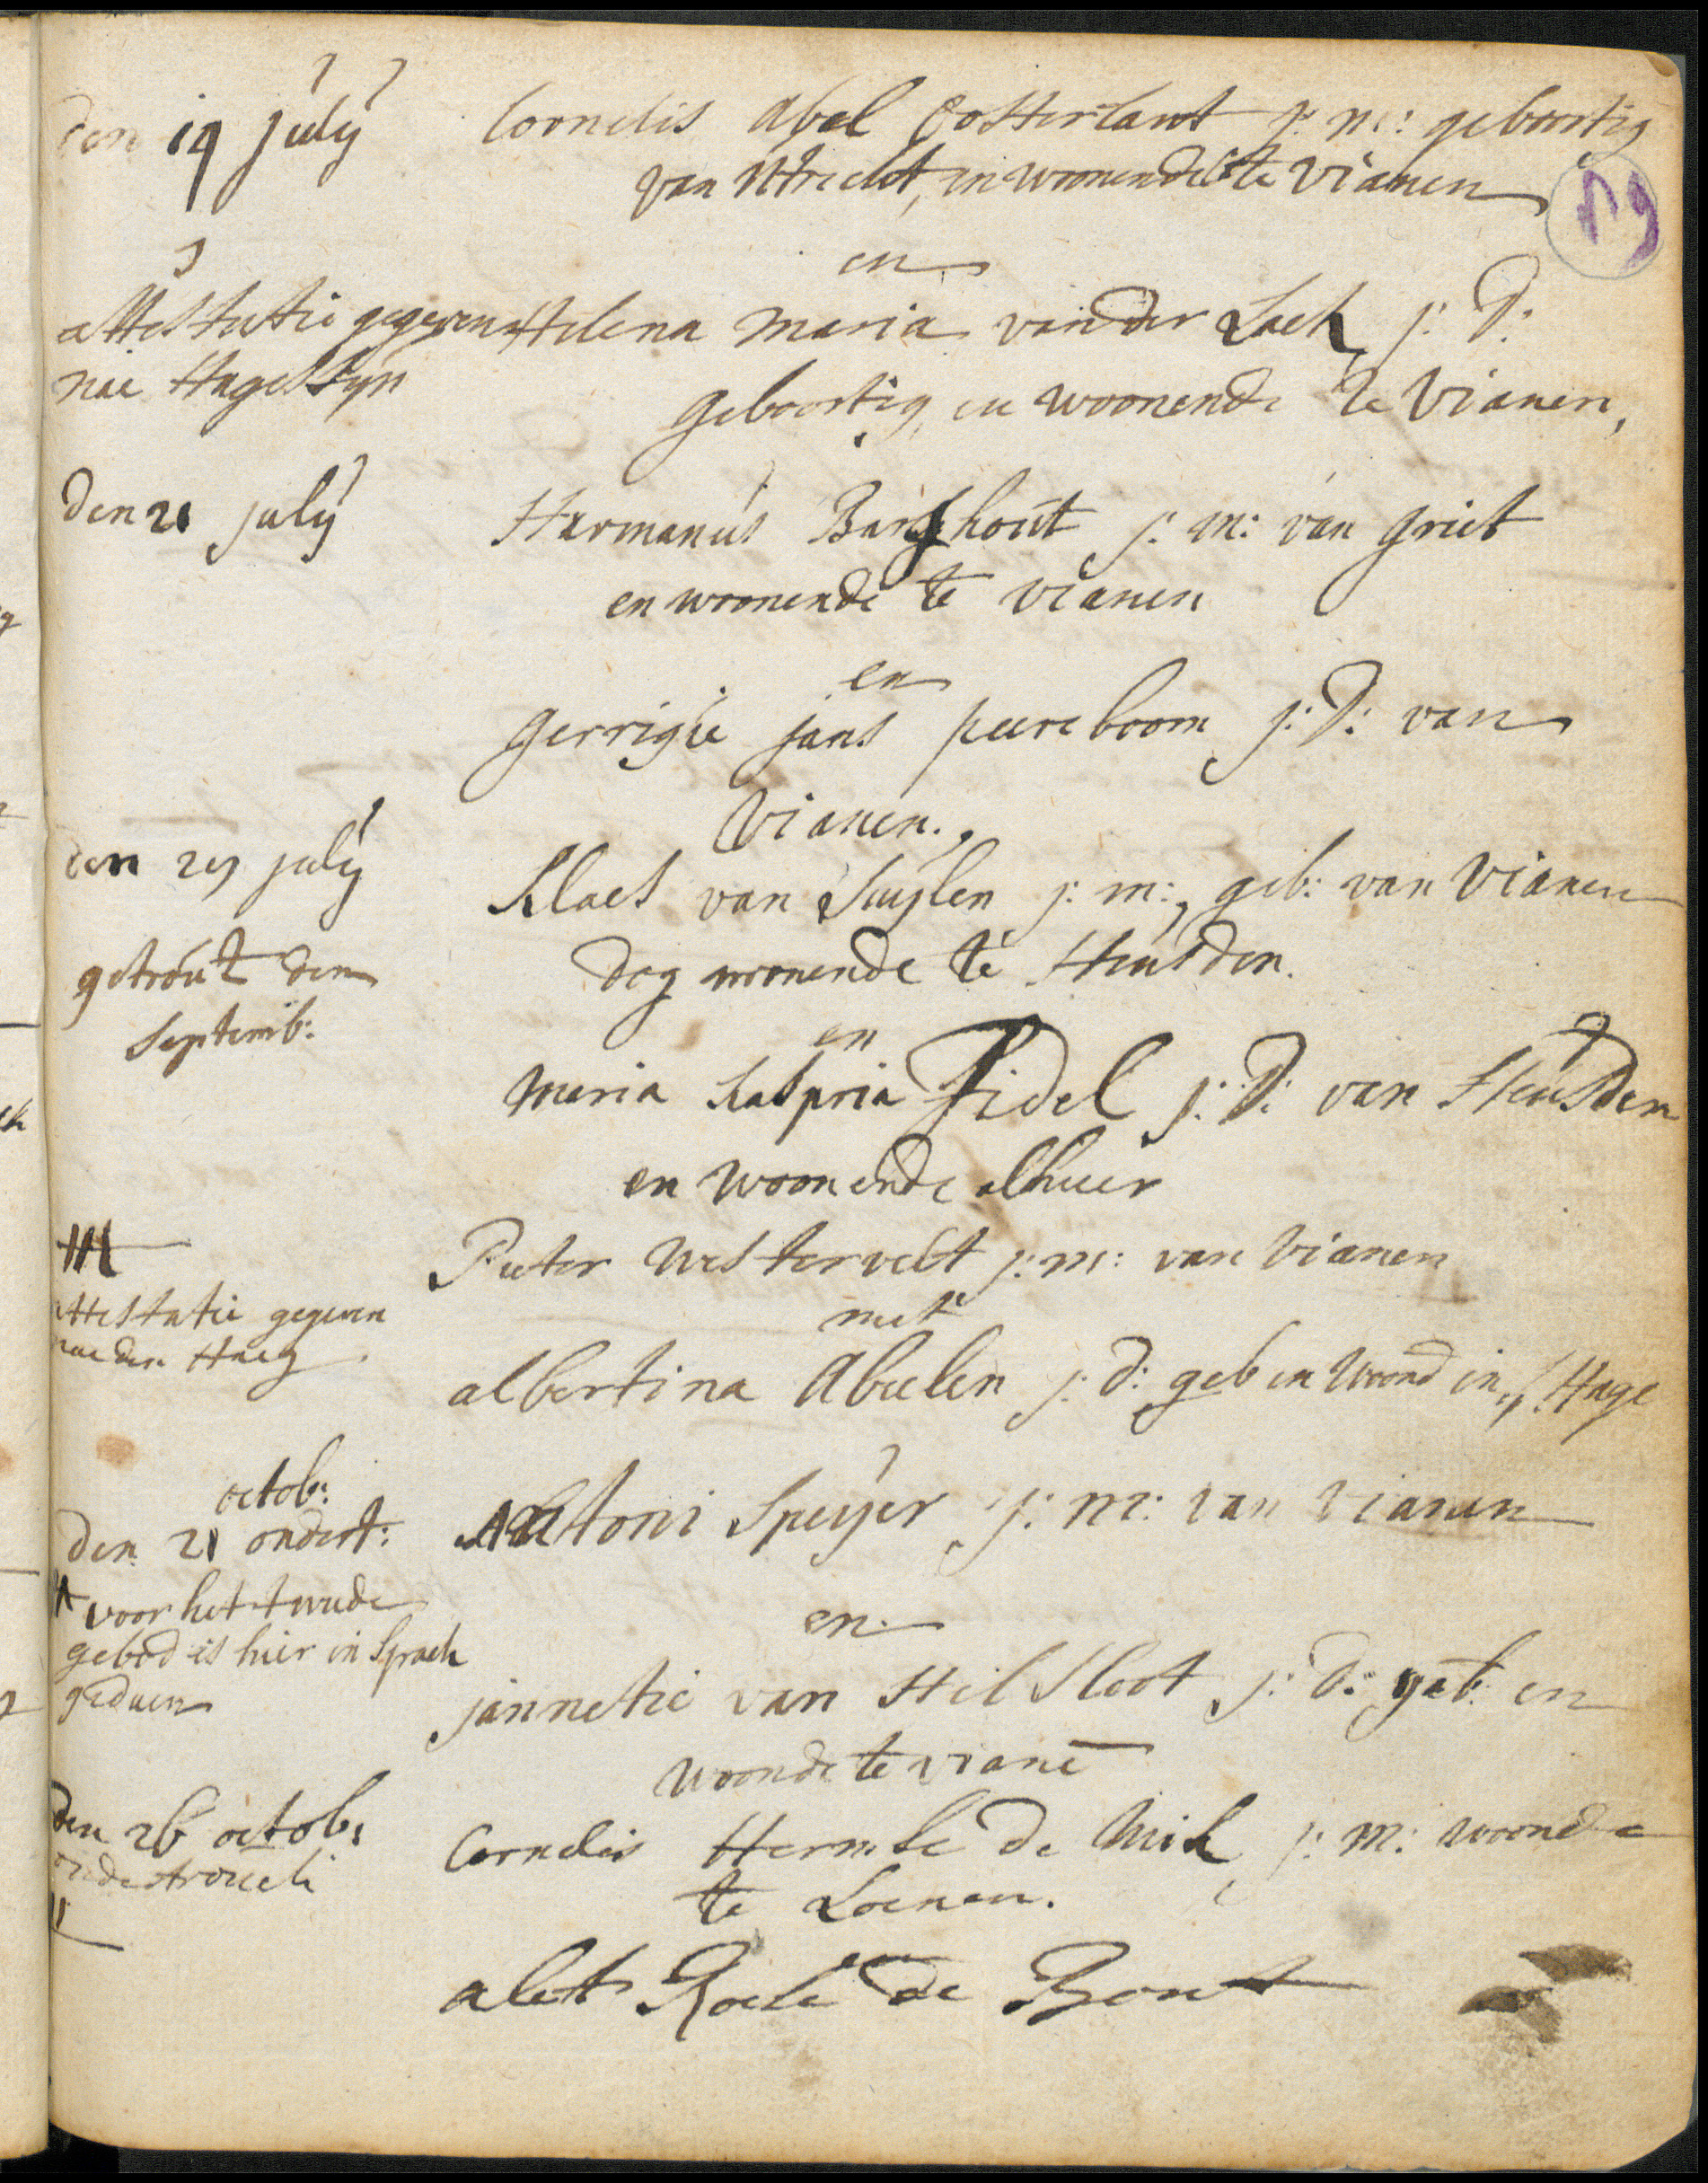 den 19 julij
Cornelis Abel Oosterlant j: m: geboortig
van Utrecht, in woonende te Vianen
19
en
attestatie gegeven
Helena Maria vander Laek j: D:
nae Hagestijn
geboortig, en woonende te Vianen,
den 21 julij
Harmanus Bar house j: m: van Griet
en woonende te vianen
en
gerrigie jans peereboom j: D: van
Vianen.
den 29 julij
Klaes van Suijlen j: m:, geb: van Vianen
dog woonende te Heusden.
getrout den
Septemb:
en
Maria Kaspria Fidel j: D: van Heusden
en woonende alhier
Pieter Westervelt j: m: van Vianen
attestatie gegeven
met
nae den Haeg
albertina Abeelen j: d: geb en woond in s Hage
octob:
den 21 ondert:
Antoni Speijer j: m: van Vianen
voor het tweede
en
gebod is hier in Spraek
gedaen
jannetie van Hel Sloot j: D: geb: en
woonde te viane
den 26 octob:
Cornelis Hermse de Mik j: m: woonde
te Loenen.
en
alet Roele de Bont